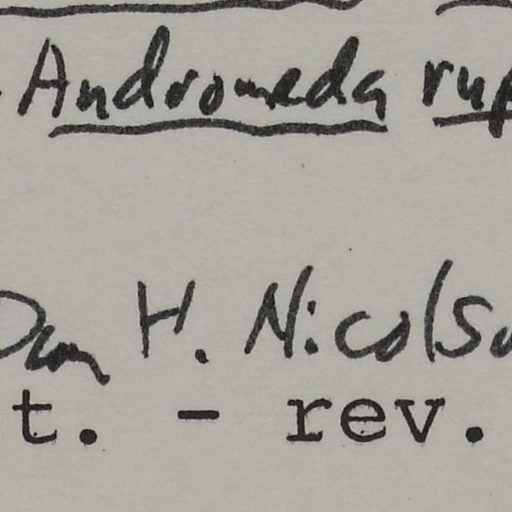 Andromeda rup
Dan H. Nicolso
t. - rev.